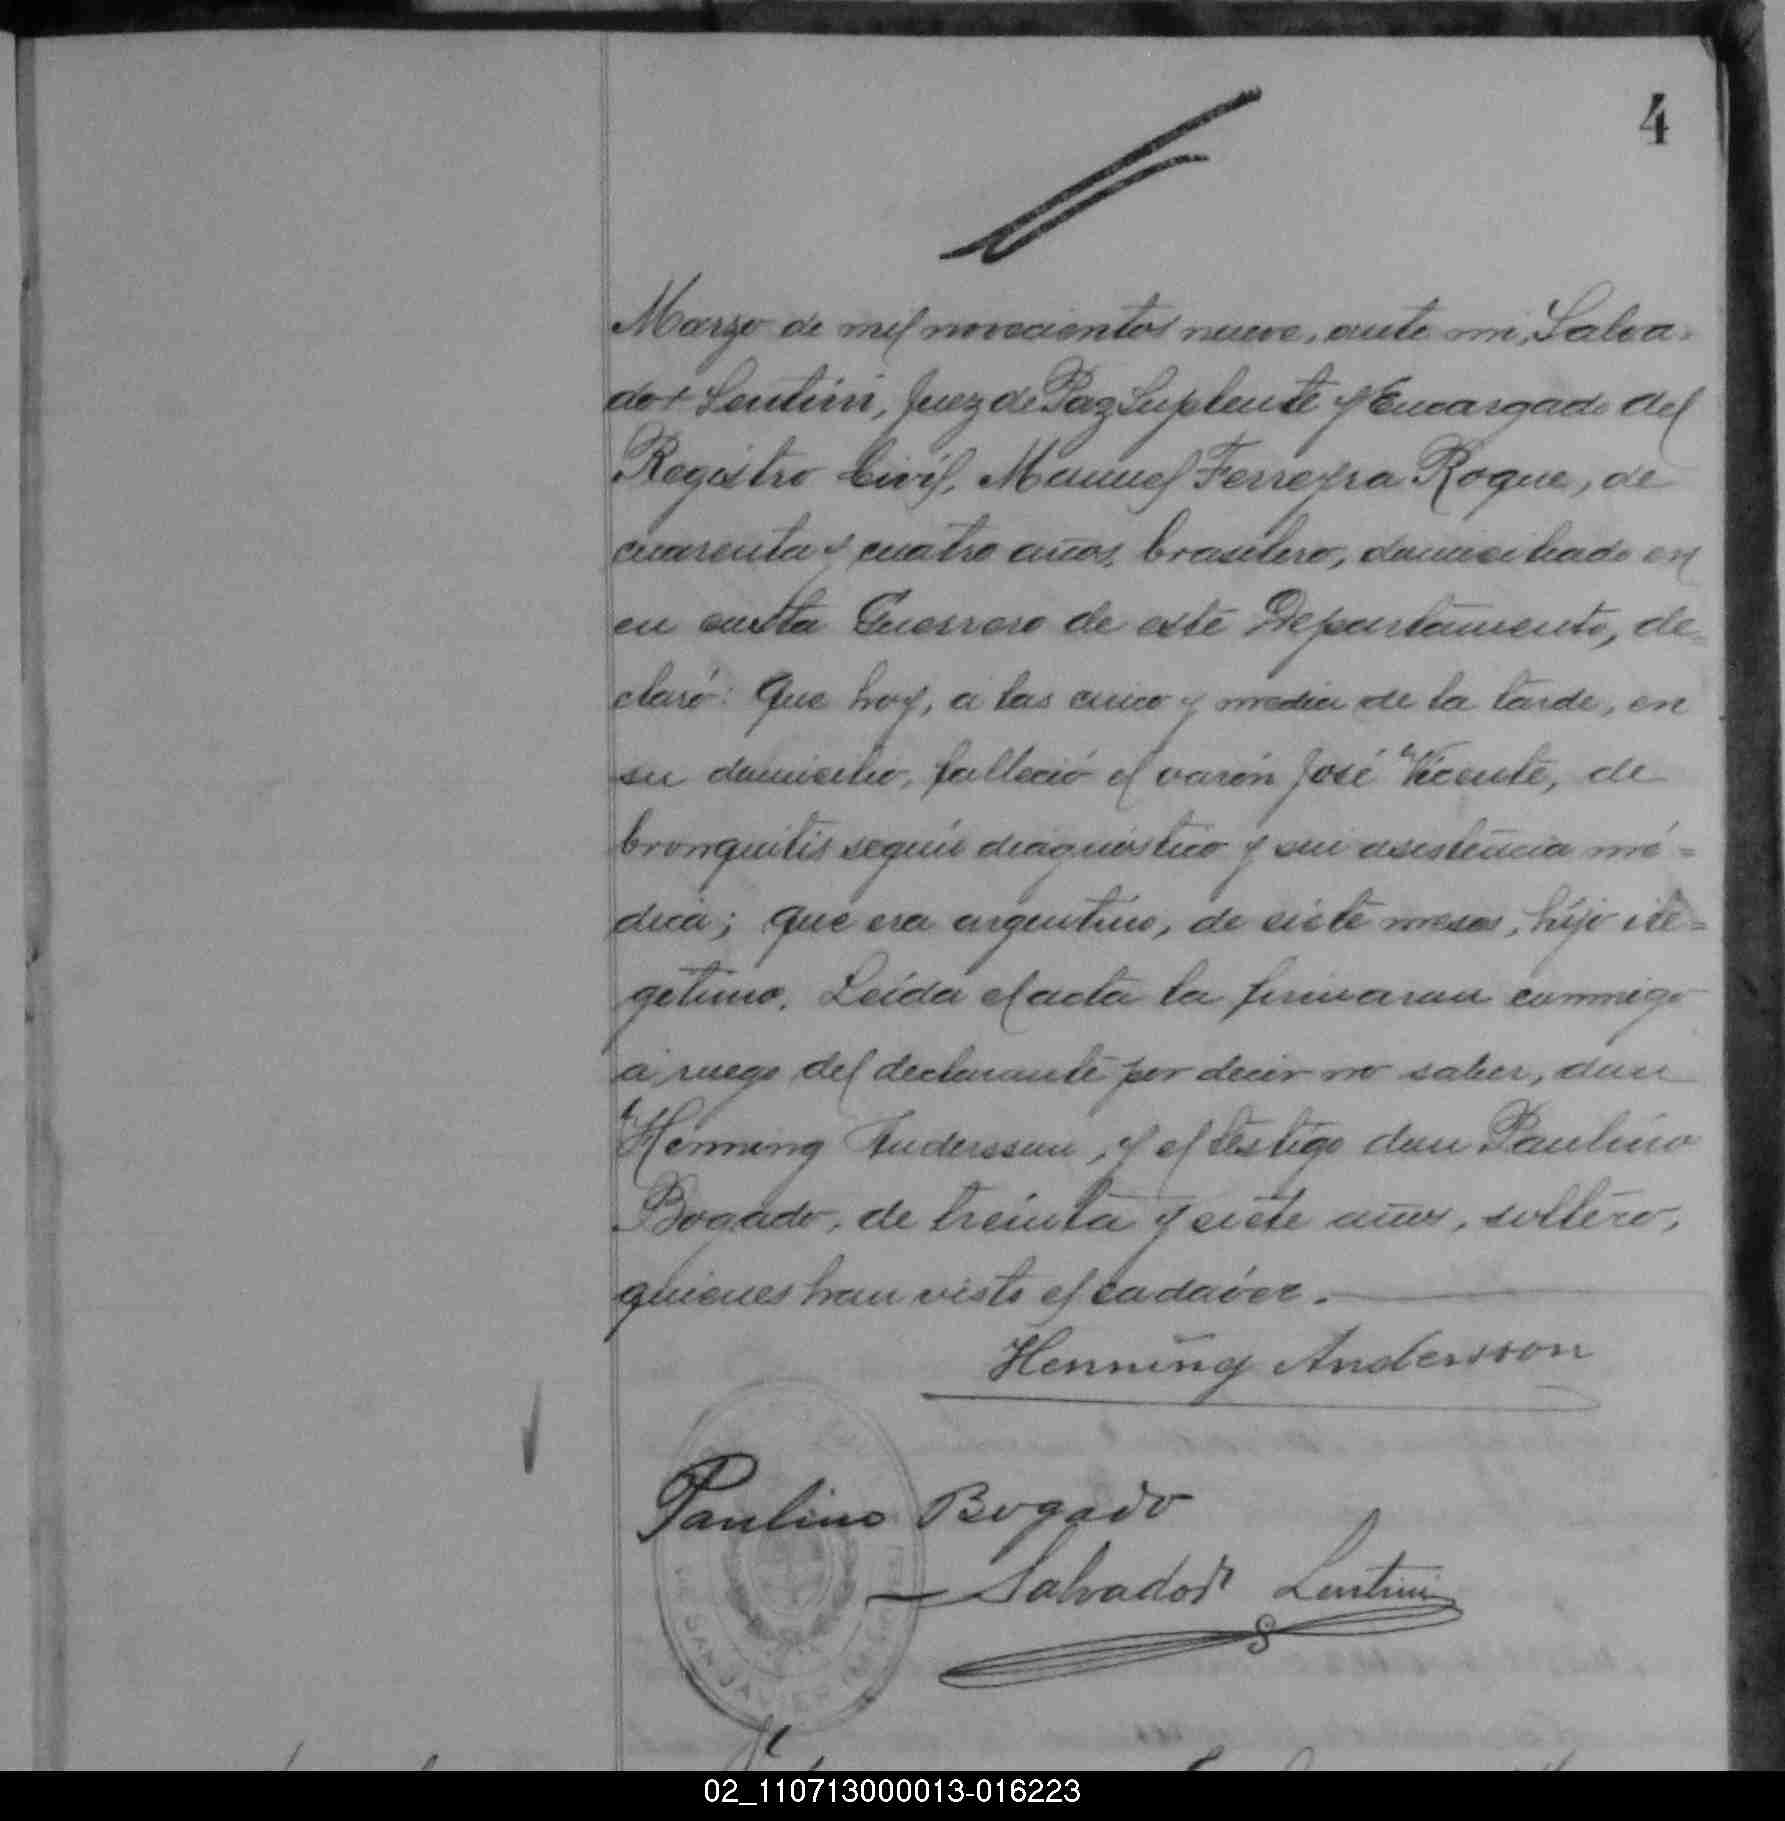 4
Marzo de mil novecientos nueve, ante mi, Salva-
dor Lentini, Juez de Paz Suplente y Encargado del
Registro Civil, Manuel Ferreyra Roque, de
cuarenta y cuatro años, brasilero, domiciliado en
en costa Guerrero de este Departamento, de=
claró: Que hoy, a las cinco y media de la tarde, en
su domicilio, falleció el varón José Vicente, de
bronquitis según diagnóstico y sin asistencia mé=
dica; que era argentino, de siete meses, hijo ile=
gítimo. Leída el acta la firmaron conmigo
a ruego del declarante por decir no saber, don
Henning Andersson, y el testigo don Paulino
Bogado, de treinta y siete años, soltero,
quienes han visto el cadáver.
Henning Andersson
Paulino Bogado
Salvador Lentini
DE SAN JAVIER (MISIONES)
02_110713000013-016223